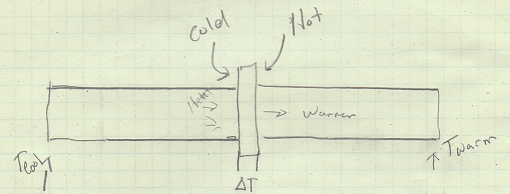 Cold
Hot
warmer
Tcool
Twarm
ΔT